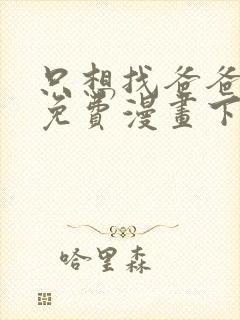 只想找爸爸
免费漫畫下
哈里森